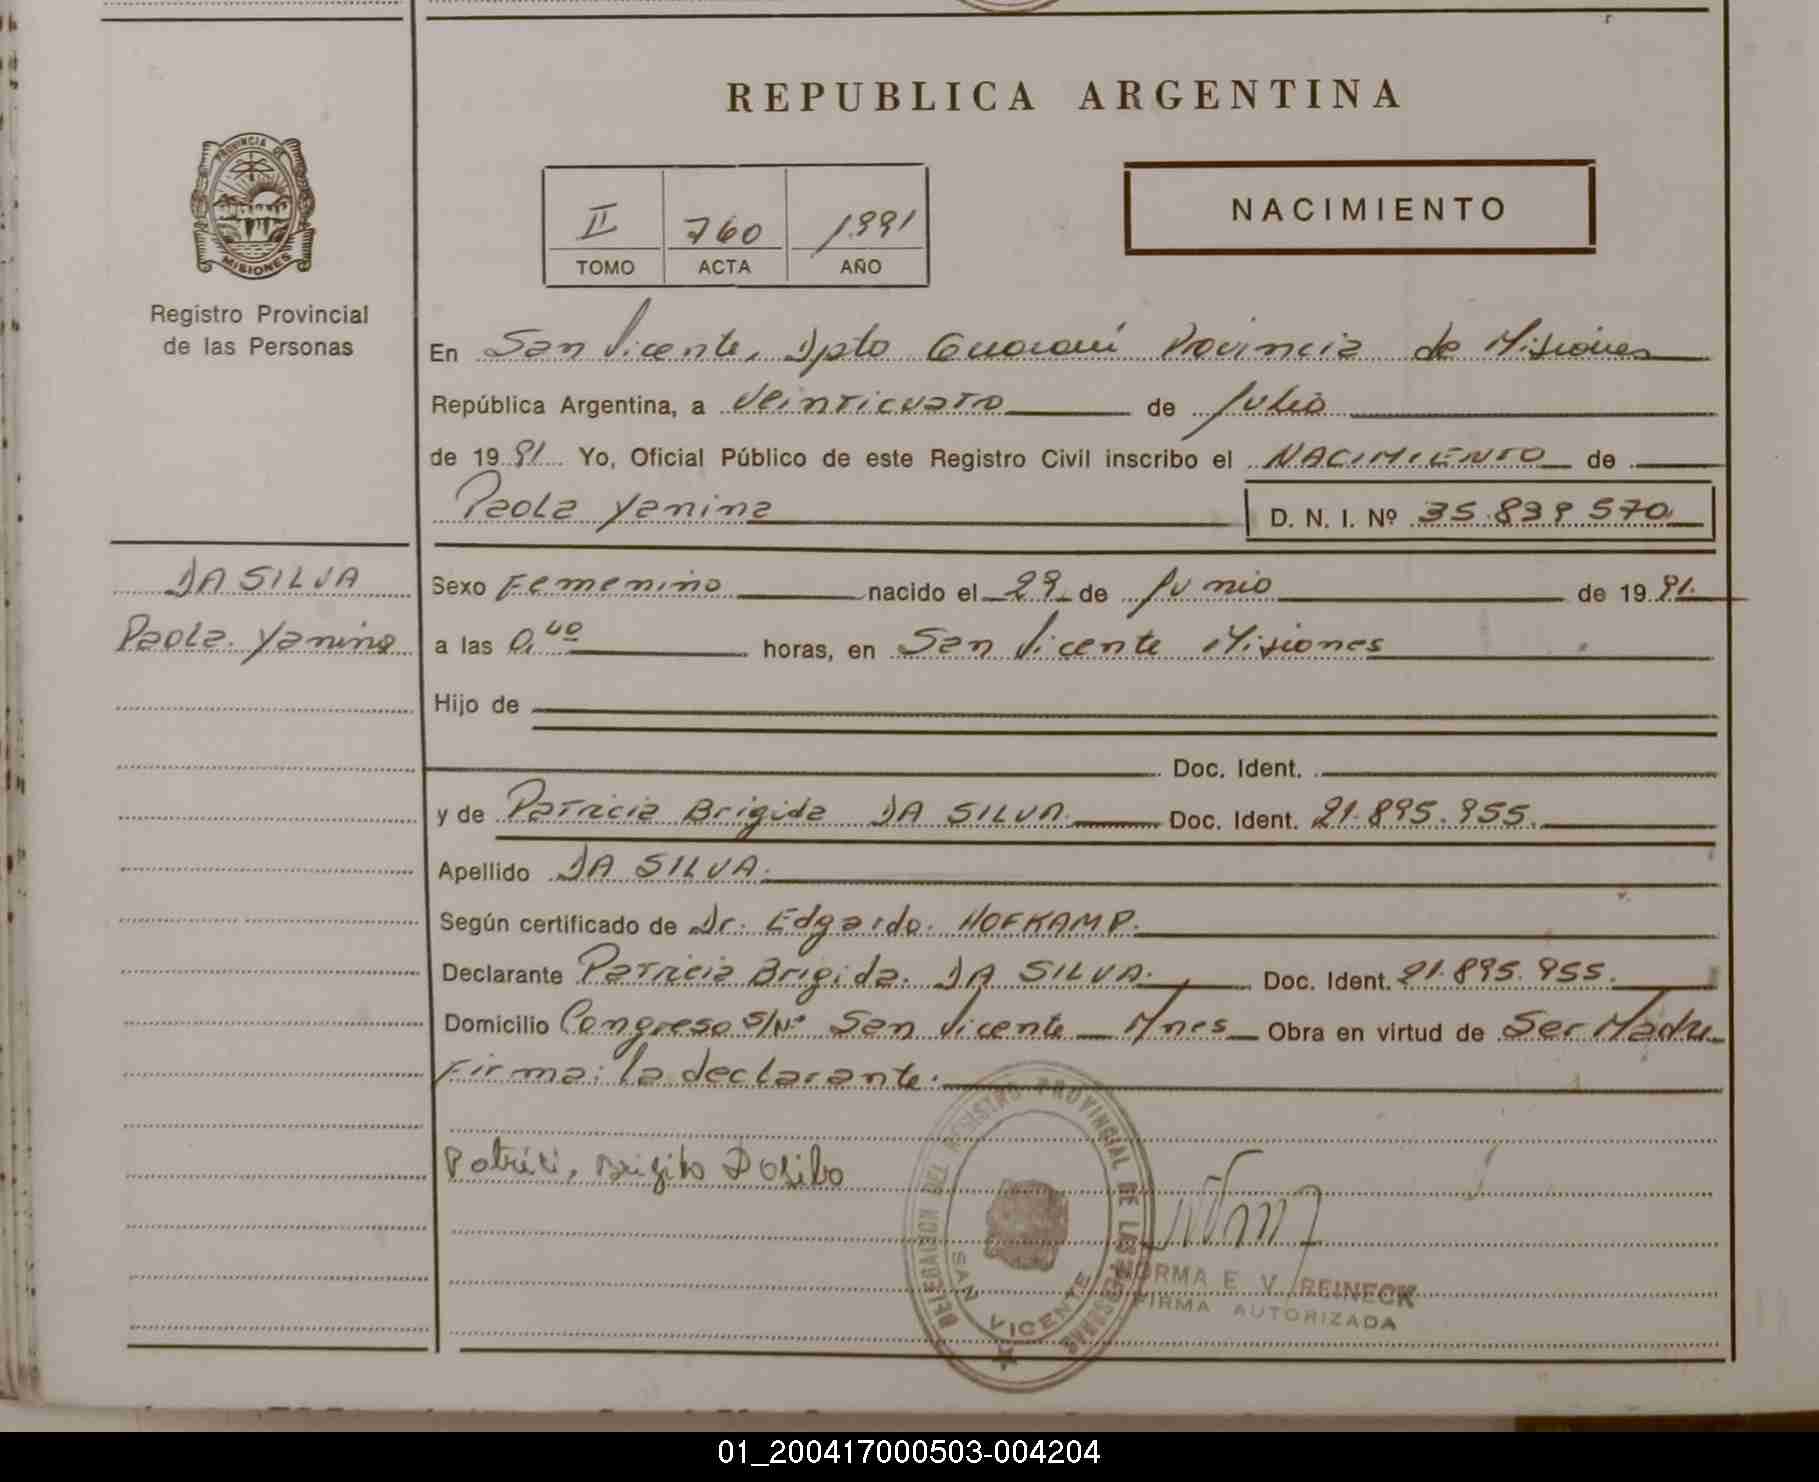 REPUBLICA ARGENTINA
PROVINCIA DE
MISIONES
Registro Provincial
de las Personas
II 760 1991
TOMO ACTA AÑO
NACIMIENTO
En San Vicente, Dpto Guaraní Provincia de Misiones
República Argentina, a Veinticuatro de Julio
de 1991 Yo, Oficial Público de este Registro Civil inscribo el NACIMIENTO de
Paola Yanina D. N. I. Nº 35.839.570
DA SILVA
Paola Yanina
Sexo Femenino nacido el 29 de Junio de 1991.
a las 0,40 horas, en San Vicente Misiones
Hijo de
Doc. Ident.
y de Patricia Brigida DA SILVA. Doc. Ident. 21.895.955.
Apellido DA SILVA.
Según certificado de Dr. Edgardo. HOFKAMP.
Declarante Patricia Brigida. DA SILVA. Doc. Ident. 21.895.955.
Domicilio Congreso S/Nº San Vicente Mnes Obra en virtud de Ser Madre
Firma: la declarante.
DELEGACION DEL REGISTRO PROVINCIAL DE LAS PERSONAS
SAN VICENTE
NORMA E. V. REINECK
FIRMA AUTORIZADA
01_200417000503-004204